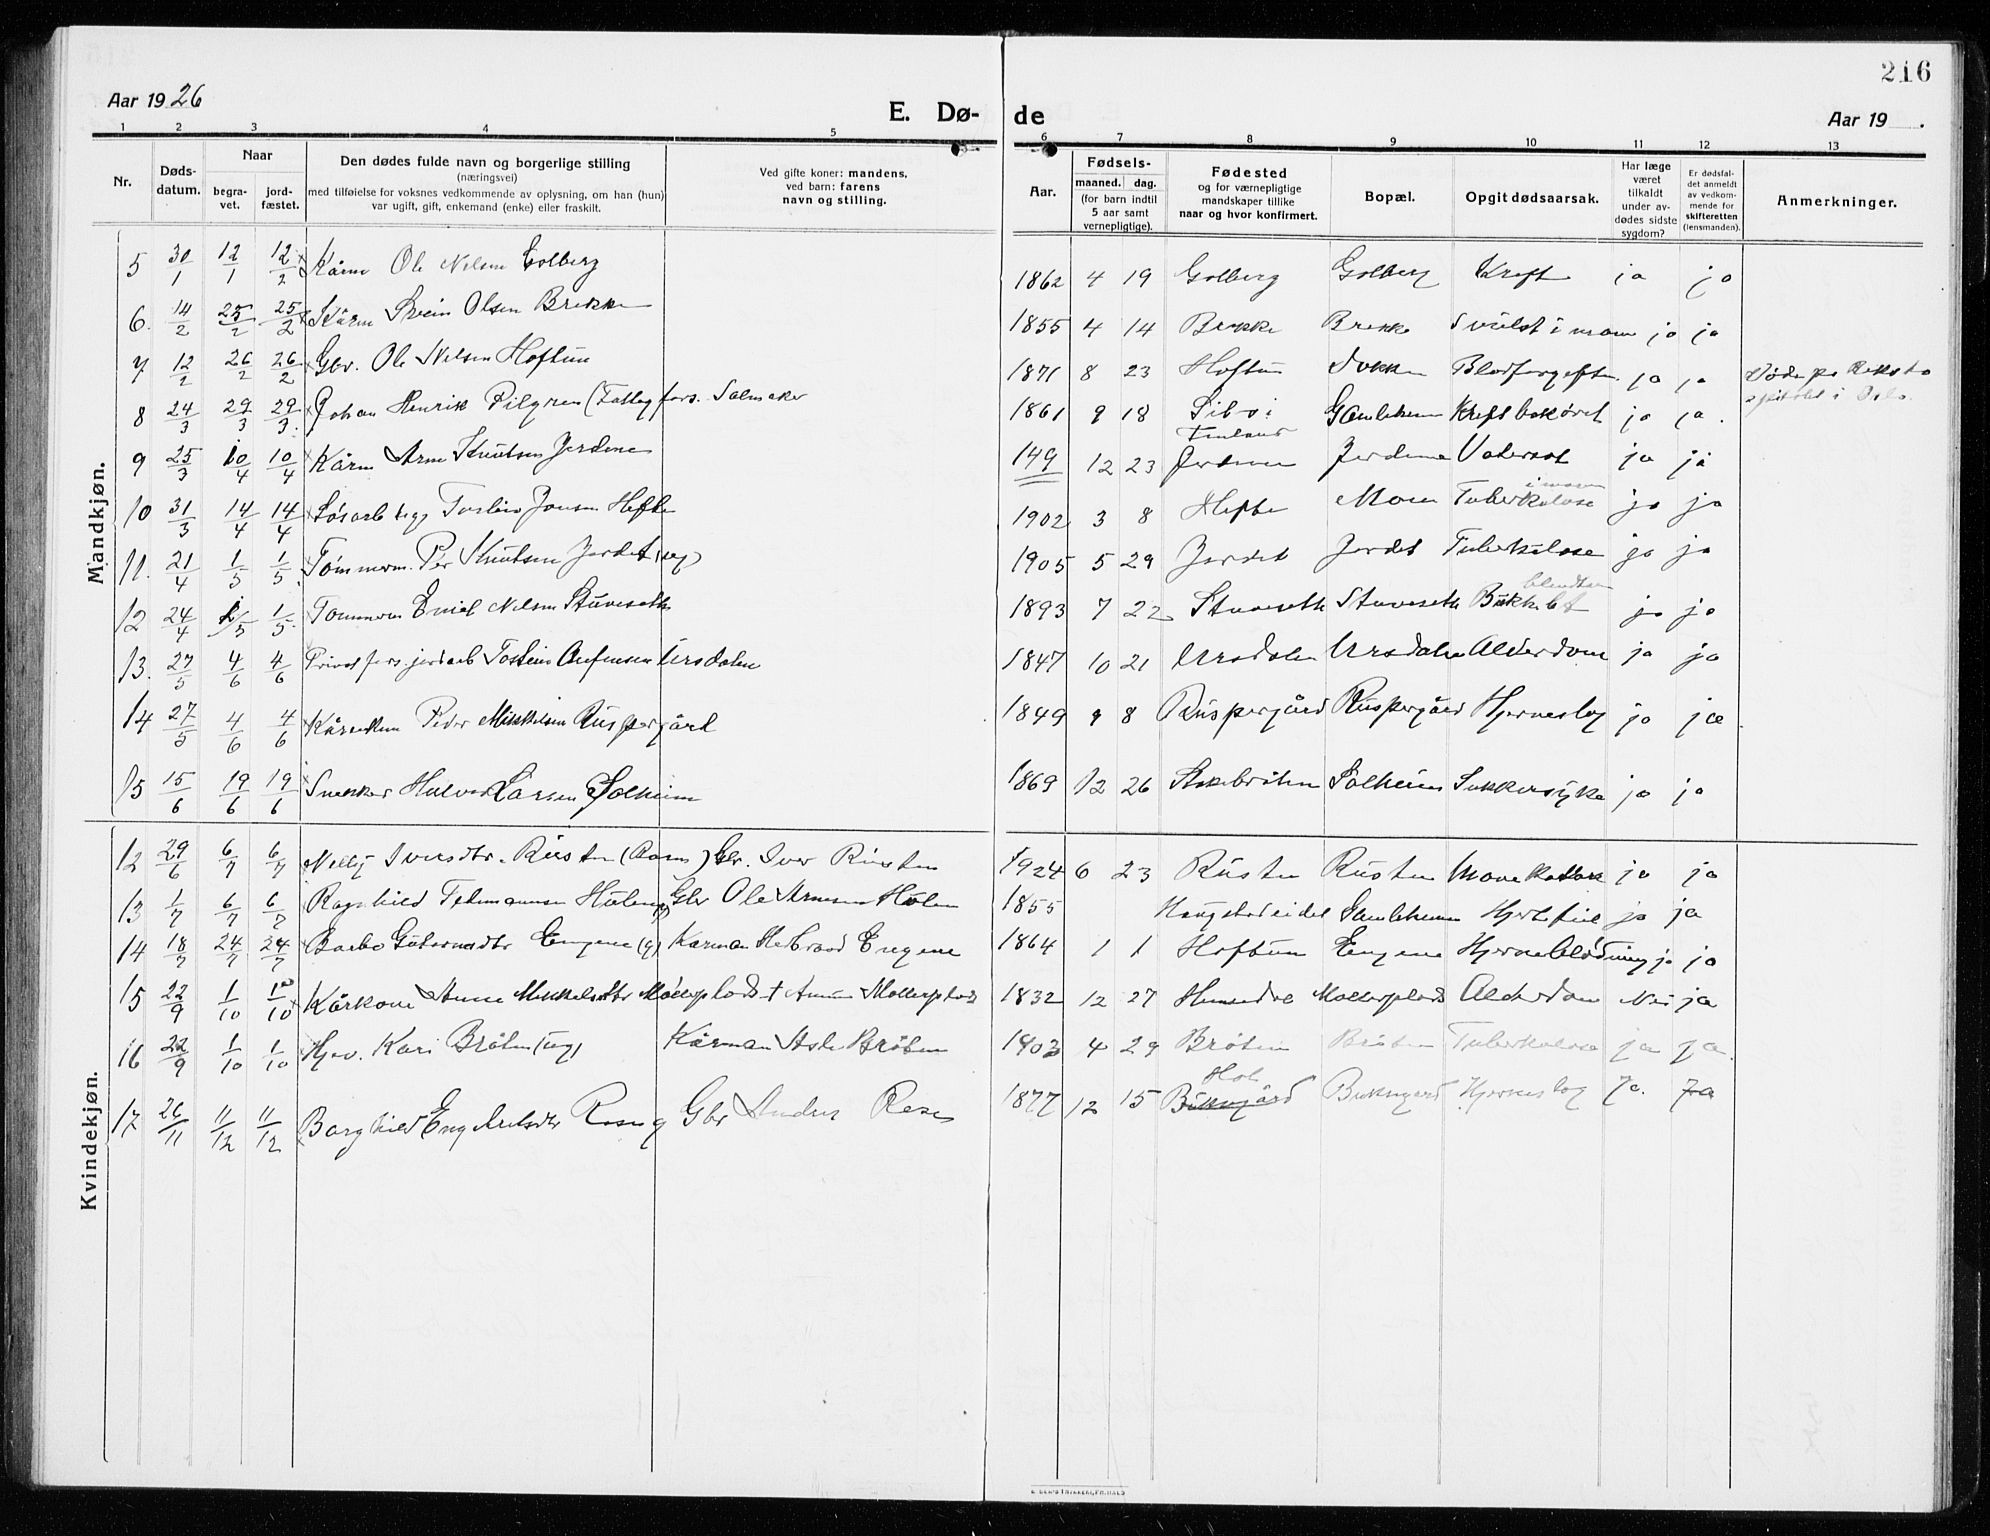 216
Aar 1926
E. Dø-
de
Aar 19 .
1 2 3 4 5 6 7 8 9 10 11 12 13
Nr.
Døds-
datum.
Naar
begra-
vet.
jord-
fæstet.
Den dødes fulde navn og borgerlige stilling
(næringsvei)
med tilføielse for voksnes vedkommende av oplysning, om han (hun)
var ugift, gift, enkemand (enke) eller fraskilt.
Ved gifte koner: mandens,
ved barn: farens
navn og stilling.
Aar.
Fødsels-
maaned. dag.
(for barn indtil
5 aar samt
vernepligtige).
Fødested
og for værnepligtige
mandskaper tillike
naar og hvor konfirmert.
Bopæl.
Opgit dødsaarsak.
Har læge
været
tilkaldt
under av-
dødes sidste
sygdom?
Er dødsfal-
det anmeldt
av vedkom-
mende for
skifteretten
(lensmanden).
Anmerkninger.
Mandkjøn.
5 30/1 12/1 12/2 Kårm Ole Nilsen Golberg 1862 4 19 Golberg Golberg Kreft ja ja
6. 14/2 25/2 25/2 Kårm Svein Olsen Brekke 1855 4 14 Brekke Brekke Svulst i mave ja ja
7 12/2 26/2 26/2 Gbr. Ole Nilsen Hoftun 1871 8 23 Hoftun Dokken Blodforgiftn. ja ja Døde på Riks
i Oslo.
8 24/3 29/3 29/3. Johan Henrik Pilgren (Fattigfors. Salmaker 1861 9 18 Sibo i
Finland Gamleheim Kreft ja ja.
9 25/3 10/4 10/4 Kårm Arne Knutsen Jordene 149 12 23 Jordene Jordene Vatersot ja ja
10 31/3 14/4 14/4 Løsarb Torstein Jonsen Hefte 1902 3 8 Hefte Moen Tuberkulose i maven ja ja
11. 21/4 1/5 1/5. Tømmerm. Per Knutsen Jordet (ug) 1905 5 29 Jordet Jordet Tuberkulose ja ja
12 24/4 1/5 1/5. Tømmerm Emil Nilsen Stuveseth 1893 7 22 Stuveseth Stuveseth ja ja
13. 27/5 4/6 4/6 Privat fors. jordarb Tostein Aufinsen Ursdalen 1847 10 21 Ursdalen Ursdalen Alderdom ja ja
14 27/5 4/6 4/6 Kårenkem Peder Mikkelsen Ruspergård 1849 9 8 Ruspergård Ruspergård Hjerneslag ja ja
15 15/6 19/6 19/6 Snekker Halvor Larsen Solheim 1869 12 26 Skebråten Solheim Sukkersyke ja ja
Kvindekjøn.
12 29/6 6/7 6/7 Nelly Iversdtr. Rusten (Barn) Gbr. Iver Rusten 1924 6 23 Rusten Rusten Mavekatarr ja ja
13 1/7 6/7 6/7 Ragnhild Holen Gbr Ole Arnesen Holen 1855 Haugstadeidet Gamleheim Hjertefeil ja ja
14 18/7 24/7 24/7 Barbo Guttormsdtr Engene (g) Kårman Herbrand Engene 1864 1 1 Hoftun Engene Hjerneblødning ja ja
15 22/9 1/10 10/10 Kårkone Anne Mikkelsdtr Møllerplads † Møllerplads 1832 12 27 Hemsedal Møllerplads Alderdom Nei ja
16 22/9 1/10 1/10 Hjev. Kari Bråten (ug) Kårman Asle Bråten 1903 4 29 Bråten Bråten Tuberkulose ja ja.
17 26/11 11/12 11/12 Borghild Engebretsdtr Gbr Anders 1877 12 15 Hol
Bukngård Bukngård Hjerneslag Ja. Ja